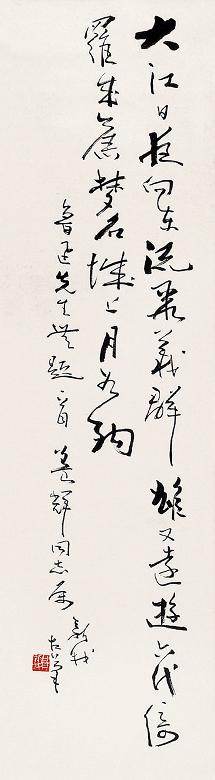 大江日夜向东流聚义群雄又远游六代绮
罗成旧梦石城上月如钩
鲁迅先生无题一首 盖辉同志属